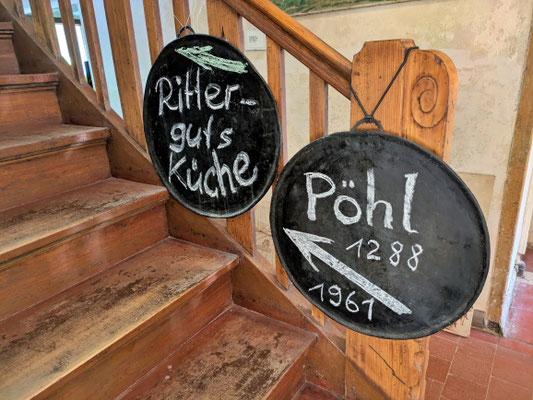 Ritter-
guts
Küche
Pöhl
1288
1961